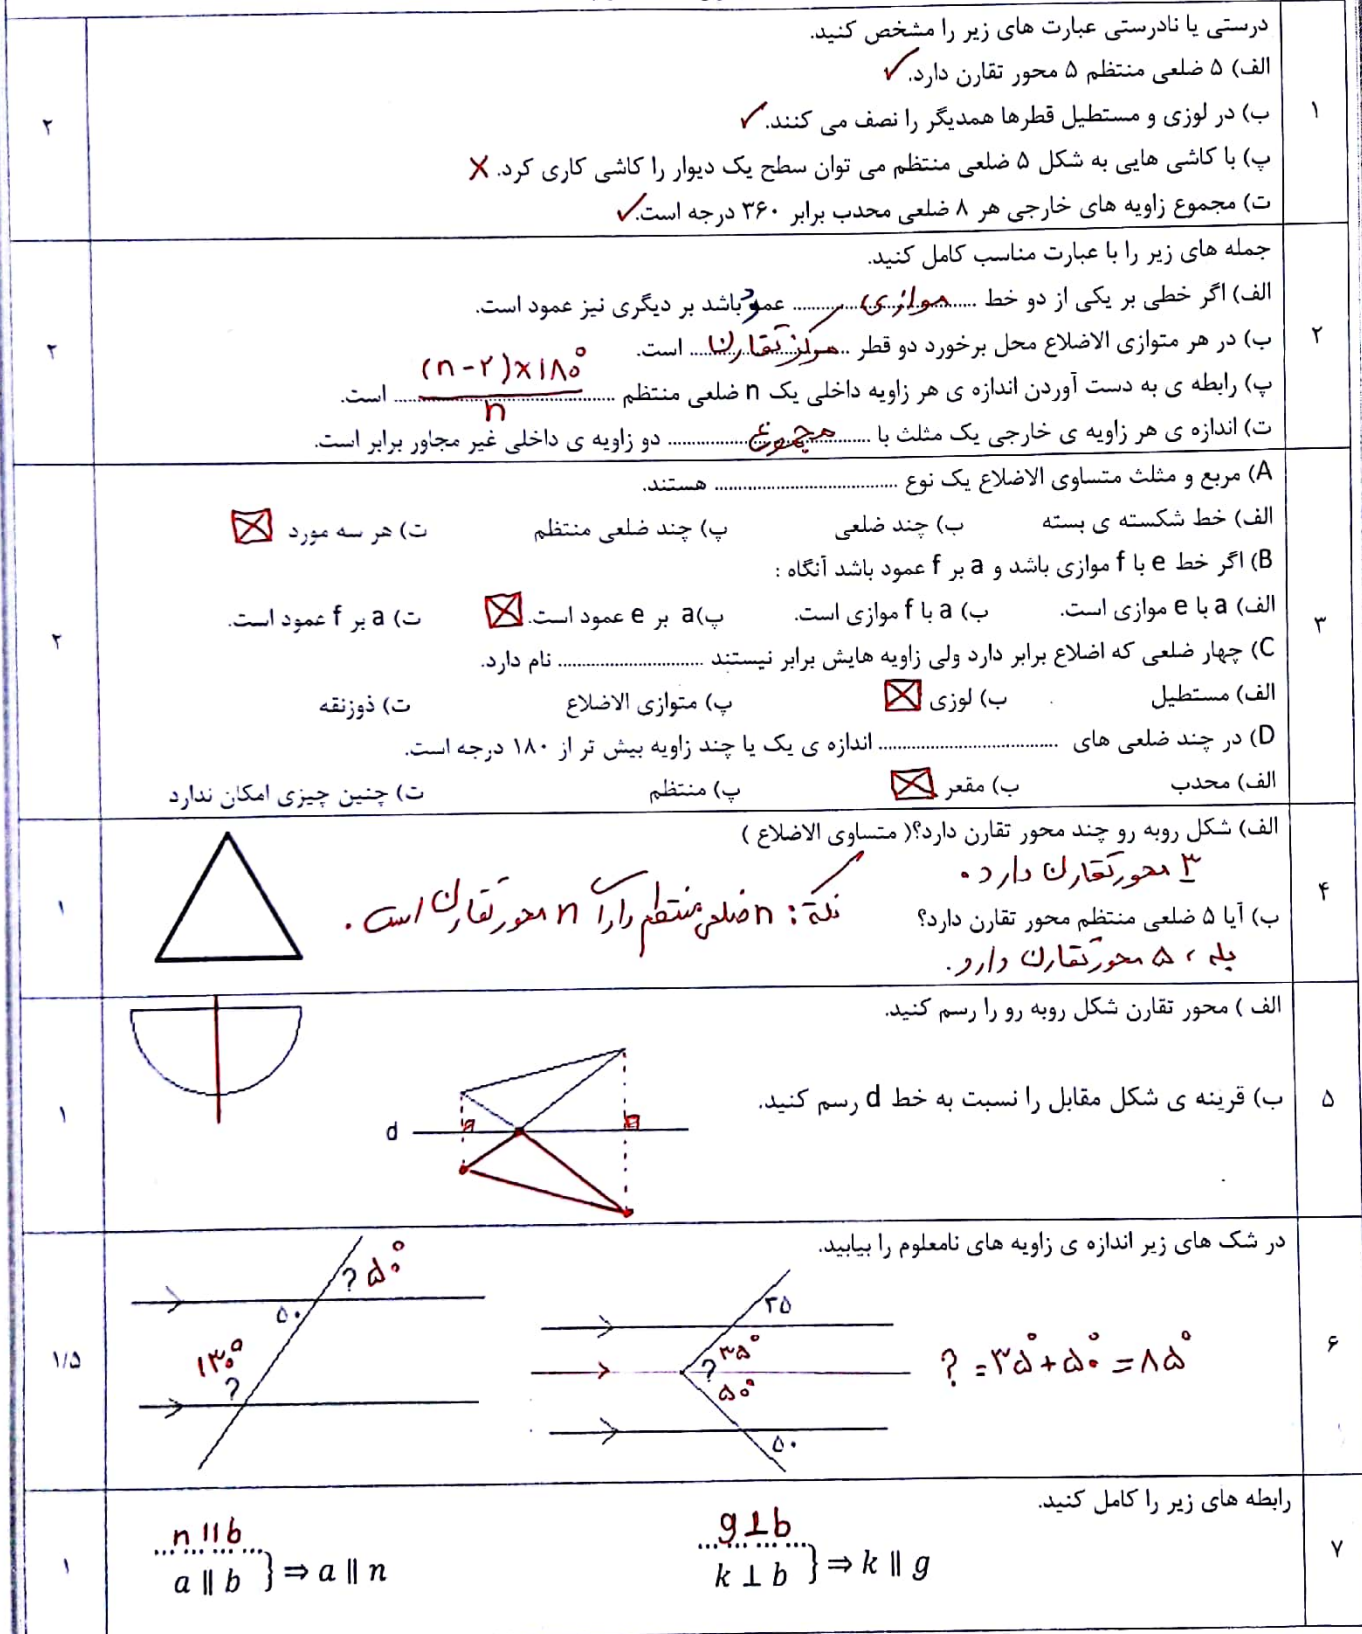 درستی یا نادرستی عبارت های زیر را مشخص کنید.
۱
الف) ۵ ضلعی منتظم ۵ محور تقارن دارد. ✓
ب) در لوزی و مستطیل قطرها همدیگر را نصف می کنند. ✓
پ) با کاشی هایی به شکل ۵ ضلعی منتظم می توان سطح یک دیوار را کاشی کاری کرد. X
ت) مجموع زاویه های خارجی هر ۸ ضلعی محدب برابر ۳۶۰ درجه است. ✓
۲
جمله های زیر را با عبارت مناسب کامل کنید.
۲
الف) اگر خطی بر یکی از دو خط ... موازی ... عمود باشد بر دیگری نیز عمود است.
ب) در هر متوازی الاضلاع محل برخورد دو قطر ... مرکز تقارن ... است.
پ) رابطه ی به دست آوردن اندازه ی هر زاویه داخلی یک n ضلعی منتظم ... (n-۲)×۱۸۰° / n ... است.
ت) اندازه ی هر زاویه ی خارجی یک مثلث با ... مجموع ... دو زاویه ی داخلی غیر مجاور برابر است.
۲
A) مربع و مثلث متساوی الاضلاع یک نوع .................... هستند.
الف) خط شکسته ی بسته ب) چند ضلعی پ) چند ضلعی منتظم ت) هر سه مورد ☒
B) اگر خط e با f موازی باشد و a بر f عمود باشد آنگاه :
۳
الف) a با e موازی است. ب) a با f موازی است. پ) a بر e عمود است. ☒ ت) a بر f عمود است.
C) چهار ضلعی که اضلاع برابر دارد ولی زاویه هایش برابر نیستند .................... نام دارد.
الف) مستطیل ب) لوزی ☒ پ) متوازی الاضلاع ت) ذوزنقه
D) در چند ضلعی های .................... اندازه ی یک یا چند زاویه بیش تر از ۱۸۰ درجه است.
الف) محدب ب) مقعر ☒ پ) منتظم ت) چنین چیزی امکان ندارد
۲
الف) شکل روبه رو چند محور تقارن دارد؟( متساوی الاضلاع )
۳ محور تقارن دارد.
۴
ب) آیا ۵ ضلعی منتظم محور تقارن دارد؟
بله ، ۵ محور تقارن دارد.
نکته : n ضلعی منتظم دارای n محور تقارن است.
۱
الف ) محور تقارن شکل روبه رو را رسم کنید.
۵
ب) قرینه ی شکل مقابل را نسبت به خط d رسم کنید.
d
۱
در شک های زیر اندازه ی زاویه های نامعلوم را بیابید.
۶
? = ۳۵° + ۵۰° = ۸۵°
۳۵
? ۳۵°
۵۰°
۵۰
? ۵۰°
۵۰
۱۳۰°
?
۱/۵
رابطه های زیر را کامل کنید.
۷
g⊥b
k ⊥ b } ⇒ k ∥ g
n || b
a ∥ b } ⇒ a ∥ n
۱